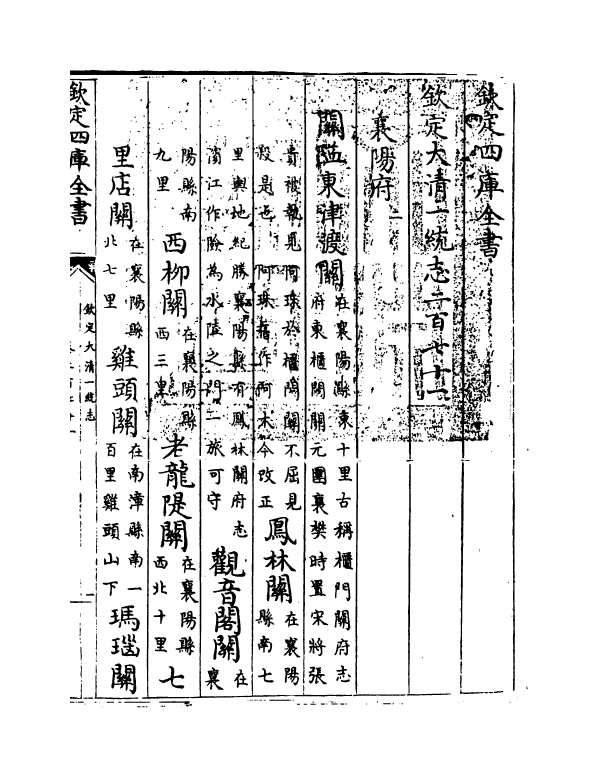 欽定四庫全書
欽定大清一統志二百七十一
襄陽府二
關隘東津渡關
在襄陽縣東十里古稱櫃門關府志
府東櫃門關元圍襄樊時置宋將張
貴被執見阿珠於櫃門關不屈見
殺是也　阿珠舊作阿术今改正
鳳林關
在襄陽
縣南七
里輿地紀勝襄陽縣有鳳林關府志
濱江作險為水陸之門一旅可守
觀音閣關
在
襄
陽縣南
九里
西柳關
在襄陽縣
西三里
老龍隄關
在襄陽縣
西北十里
七
里店關
在襄陽縣
北七里
雞頭關
在南漳縣南一
百里雞頭山下
瑪瑙關
欽定四庫全書
欽定大清一統志